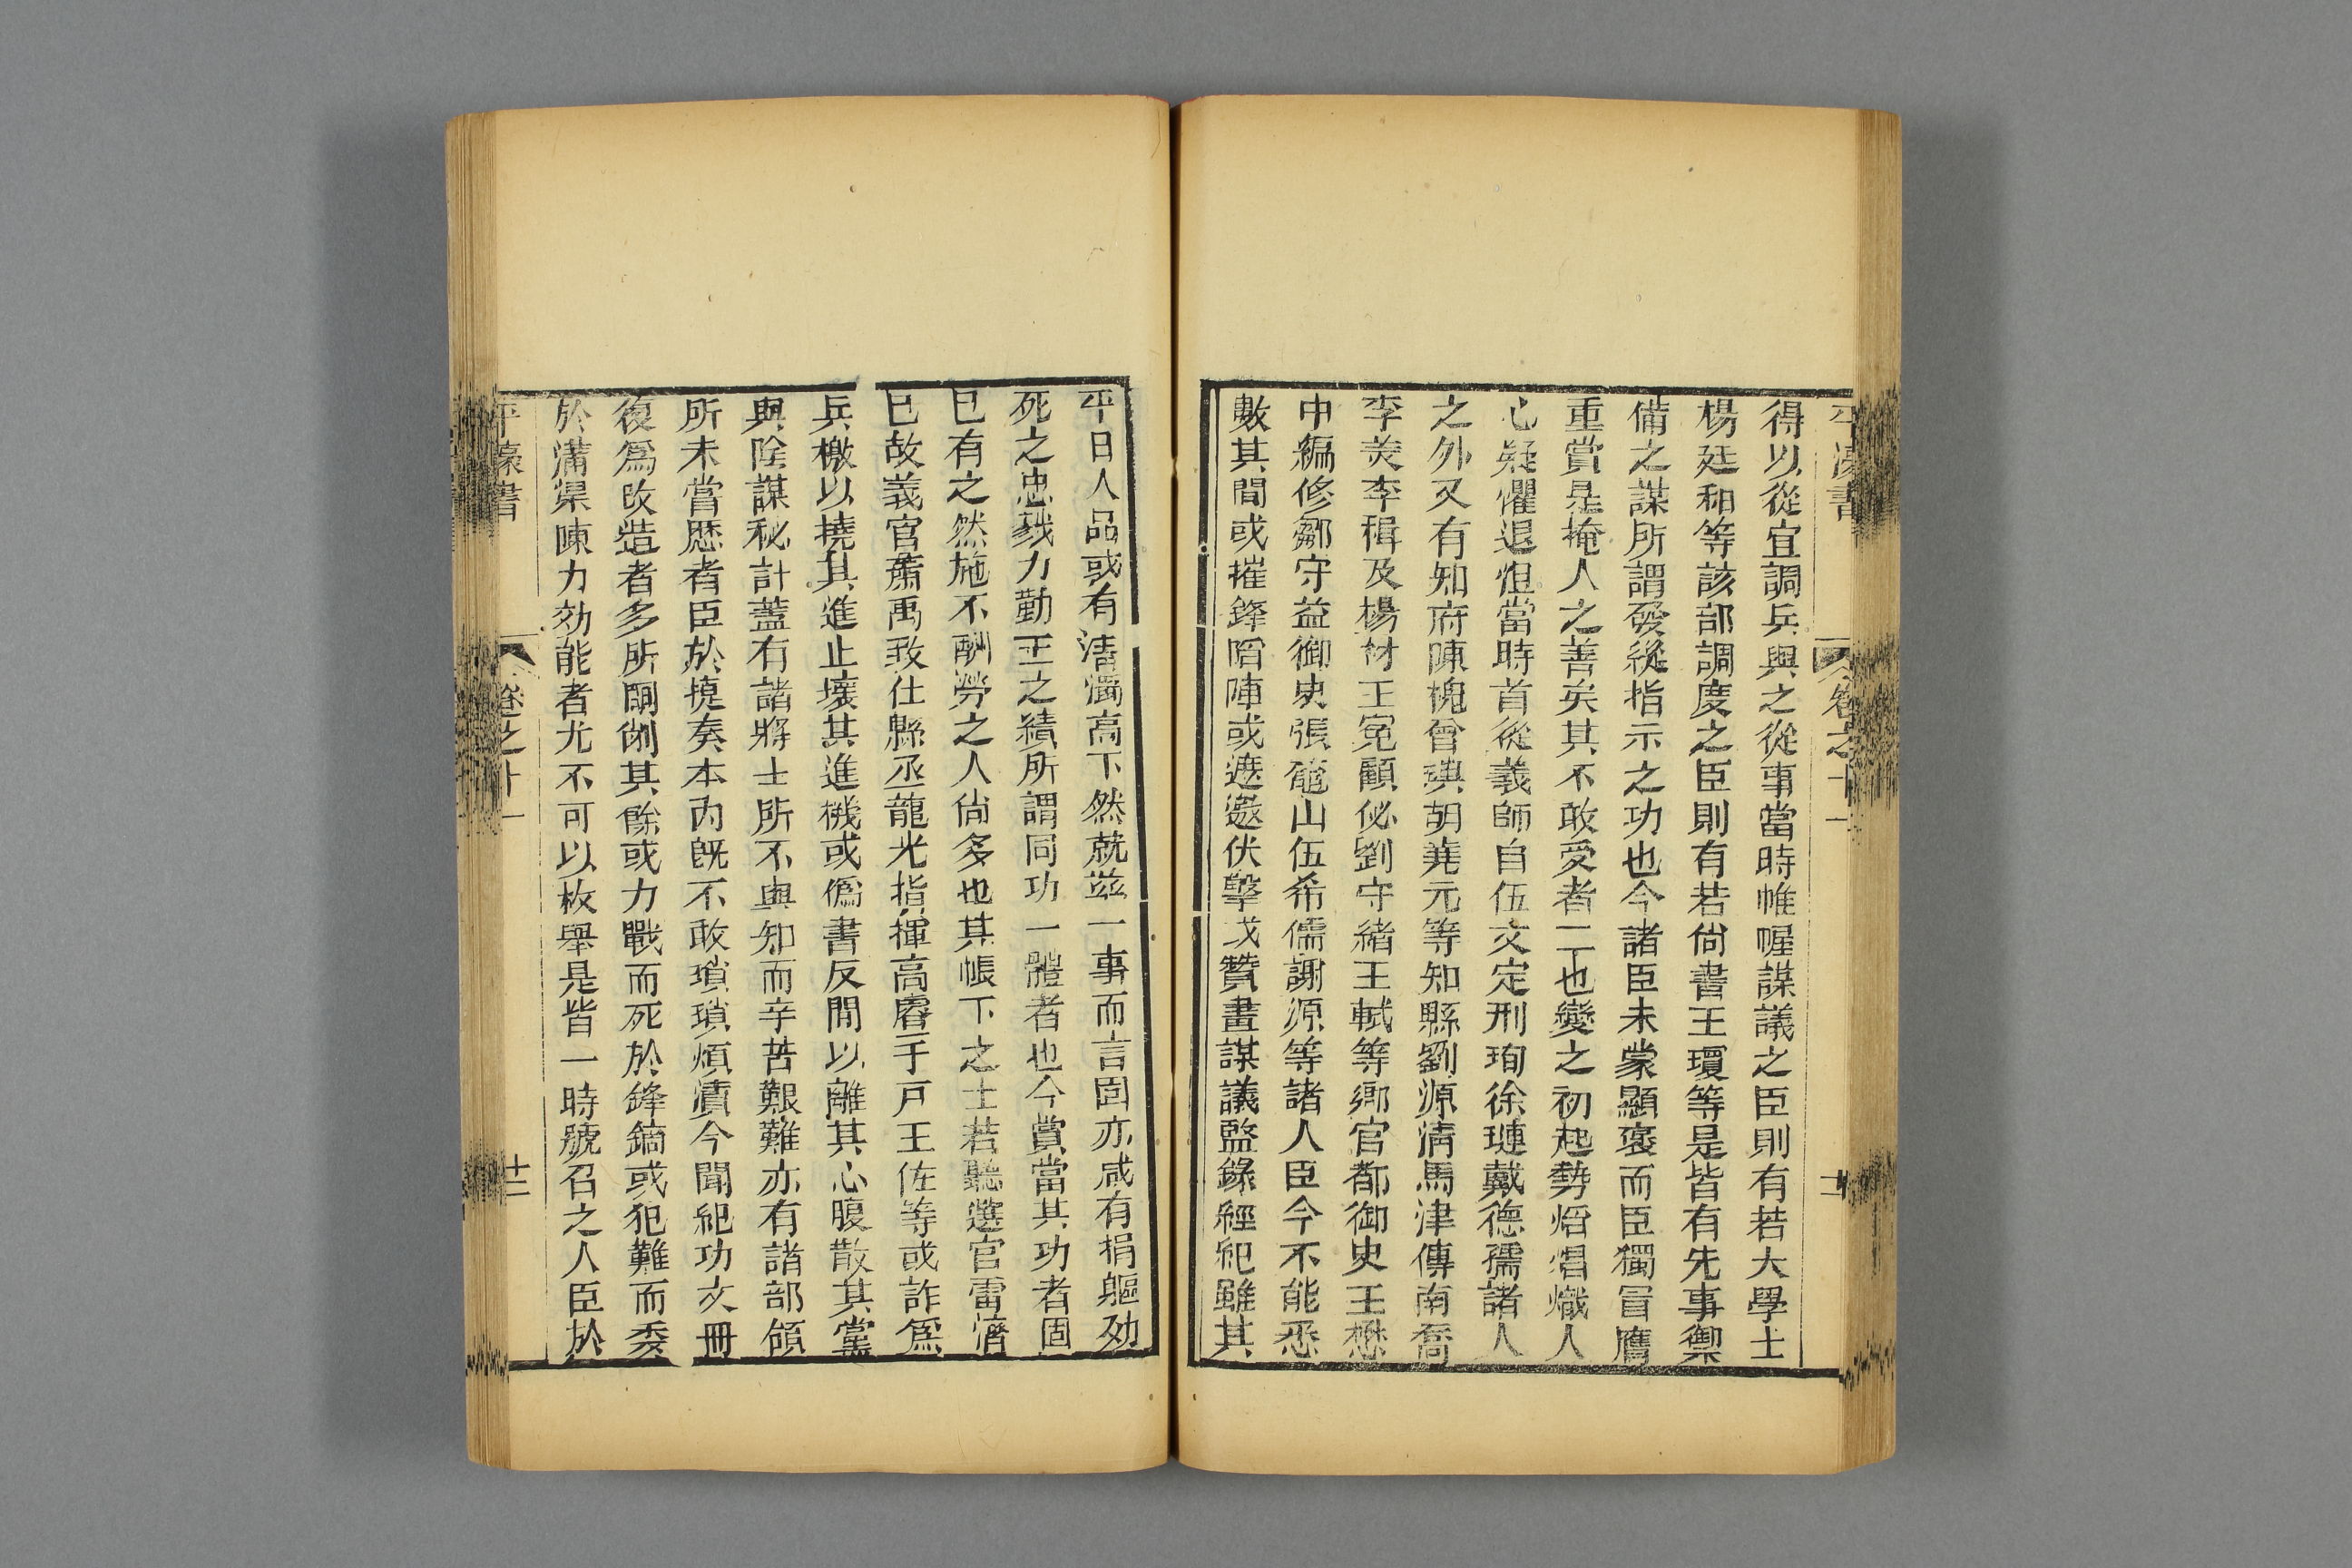 平濠書 卷之十一 十一
得以從宜調兵與之從事當時帷幄謀議之臣則有若大學士
楊廷和等該部調度之臣則有若尙書王瓊等是皆有先事禦
備之謀所謂發縱指示之功也今諸臣未蒙顯褒而臣獨冒膺
重賞是掩人之善矣其不敢受者二也變之初起勢焰焻熾人
心疑懼退怚當時首從義師自伍文定刑珣徐璉戴德孺諸人
之外又有知府陳槐曾璵胡堯元等知縣劉源淸馬津傅南喬
李美李楫及楊材王冕顧佖劉守緒王軾等鄉官都御史王懋
中編修鄒守益御史張鼇山伍希儒謝源等諸人臣今不能悉
數其間或摧鋒陷陣或遮邀伏擊或贊畫謀議監錄經紀雖其
平日人品或有淸濁高下然就兹一事而言固亦咸有捐軀効
死之忠戮力勤王之績所謂同功一體者也今賞當其功者固
已有之然施不酬勞之人尙多也其帳下之士若聽選官雷濟
已故義官蕭禹致仕縣丞龍光指揮高睿千戸王佐等或詐爲
兵檄以撓其進止壞其進機或僞書反間以離其心腹散其黨
與陰謀秘計蓋有諸將士所不與知而辛苦艱難亦有諸部領
所未嘗歷者臣於㨗奏本內旣不敢瑣瑣煩瀆今聞紀功文冊
復爲改造者多所刪削其餘或力戰而死於鋒鏑或犯難而委
於溝渠陳力効能者尤不可以枚舉是皆一時號召之人臣於
平濠書 卷之十一 十二